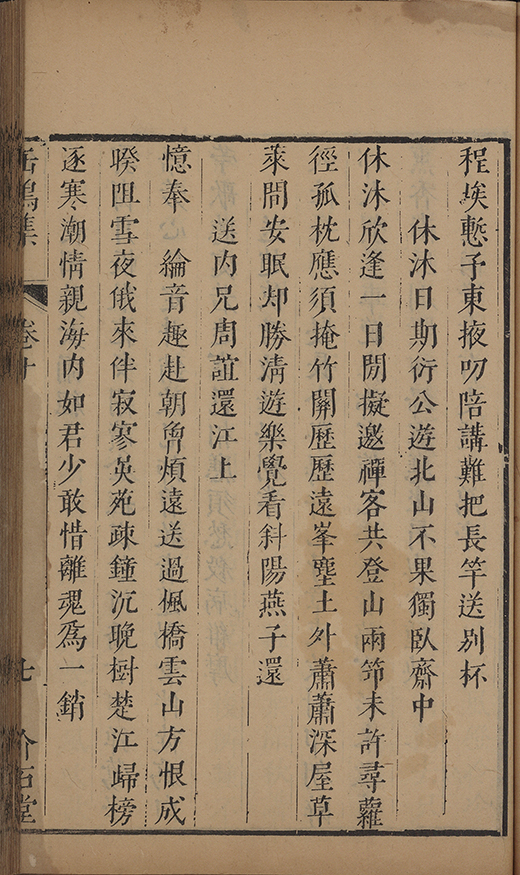 程埃慙予東掖叨陪講難把長竿送别杯
休沐日期衍公遊北山不果獨臥齋中
休沐欣逢一日閒擬邀禪客共登山兩笻未許尋蘿
徑孤枕應須掩竹關歷歷遠峯塵土外蕭蕭深屋草
萊問安眠却勝清遊樂覺看斜陽燕子還
送内兄周誼還江上
憶奉　綸音趣赴朝曾煩遠送過楓橋雲山方恨成
暌阻雪夜俄來伴寂寥吳苑疎鐘沉晚樹楚江歸榜
逐寒潮情親海内如君少敢惜離魂爲一銷
缶鳴集
卷十
七
介石堂